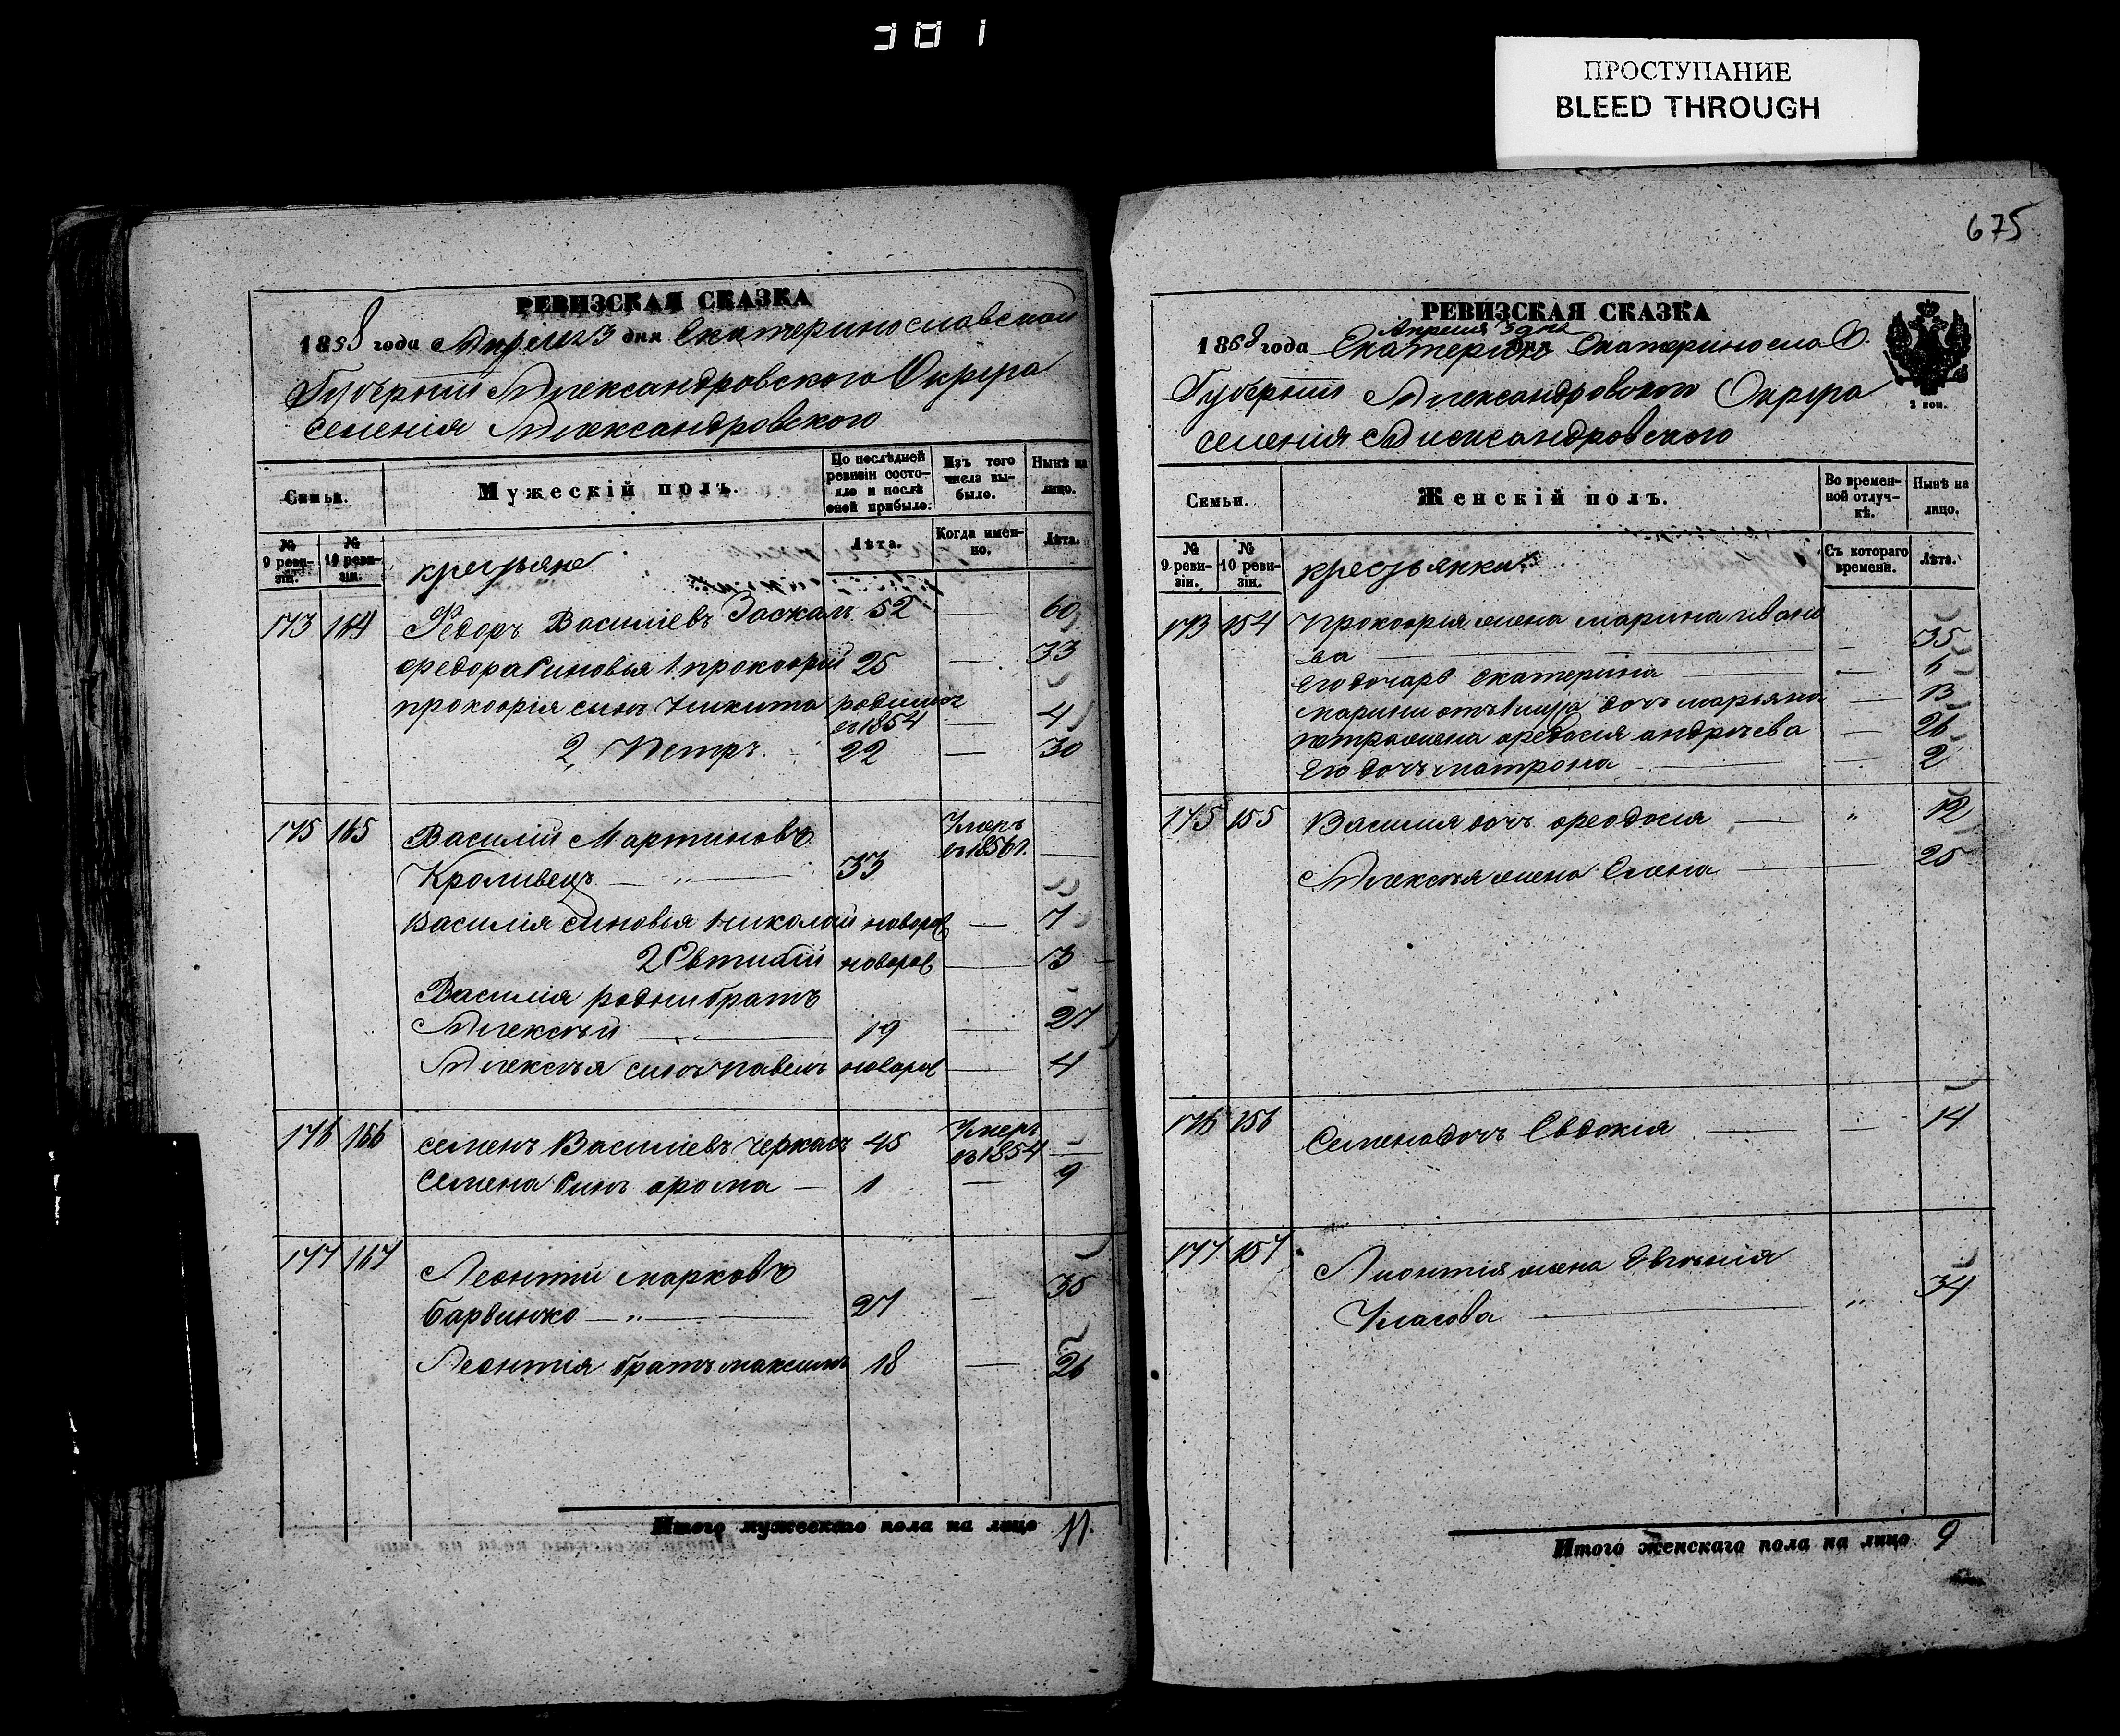 301
ПРОСТУПАНИЕ
BLEED THROUGH
РЕВИЗСКАЯ СКАЗКА
1858 года Апреля 3 дня Екатеринославской
Губернии Александровского Округа
селенія Александровского
Семьи.
Мужескій полъ.
По послѣдней ревизіи состояло и послѣ оной прибыло.
Изъ того числа выбыло.
Нынѣ на лицо.
№ 9 ревизіи.
№ 10 ревизіи.
крестьяне
Лѣта.
Когда именно.
Лѣта.
173 164 Федоръ Василіевъ 52 — 60
Федора синовья 1 прокофій 25 — 33
прокофія синъ Никита родился
въ 1854 — 4
2, Петръ 22 — 30
175 165 Василій Мартиновъ Умеръ
въ 1856 г. —
Кроливецъ — „ — 33
Василія синовья Николай новорож — 7
2 новорож — 3
Василія родни братъ
Алексѣй — „ — 19 — 27
Алексѣя синъ павелъ новорож — 4
176 166 семенъ Василіевъ Черкасъ 45 Умеръ
въ 1854 —
Семена синъ фома — 1 — 9
177 167 Леонтій марковъ
Барвинко — „ — 27 — 35
Леонтія братъ максимъ 18 — 26
Итого мужескаго пола на лицо 11.
675
РЕВИЗСКАЯ СКАЗКА
Апреля 3 дня
1858 года Екатерино дня Екатеринослав.
Губернии Александровского Округа
селенія Александровского
2 коп.
Семьи.
Женскій полъ.
Во временной отлучкѣ.
Нынѣ на лицо.
№ 9 ревизіи.
№ 10 ревизіи.
крестьянки
Съ котораго времени.
Лѣта.
173 154 Прокофія жена марина ивано
ва — 35
Его дочарь Екатерина —
марини отъ 1 мужа дочъ марьяна — 13
петра жена федосія андрѣева — 26
Его дочъ матрона — 2
175 155 Василия дочъ феодосія — „ 12
Алексѣя жена Елена — 25
176 156 Семена дочъ Евдокія — 14
177 157 Лионтія жена Евгѣнія
Власова — „ 34
Итого женскаго пола на лицо 9